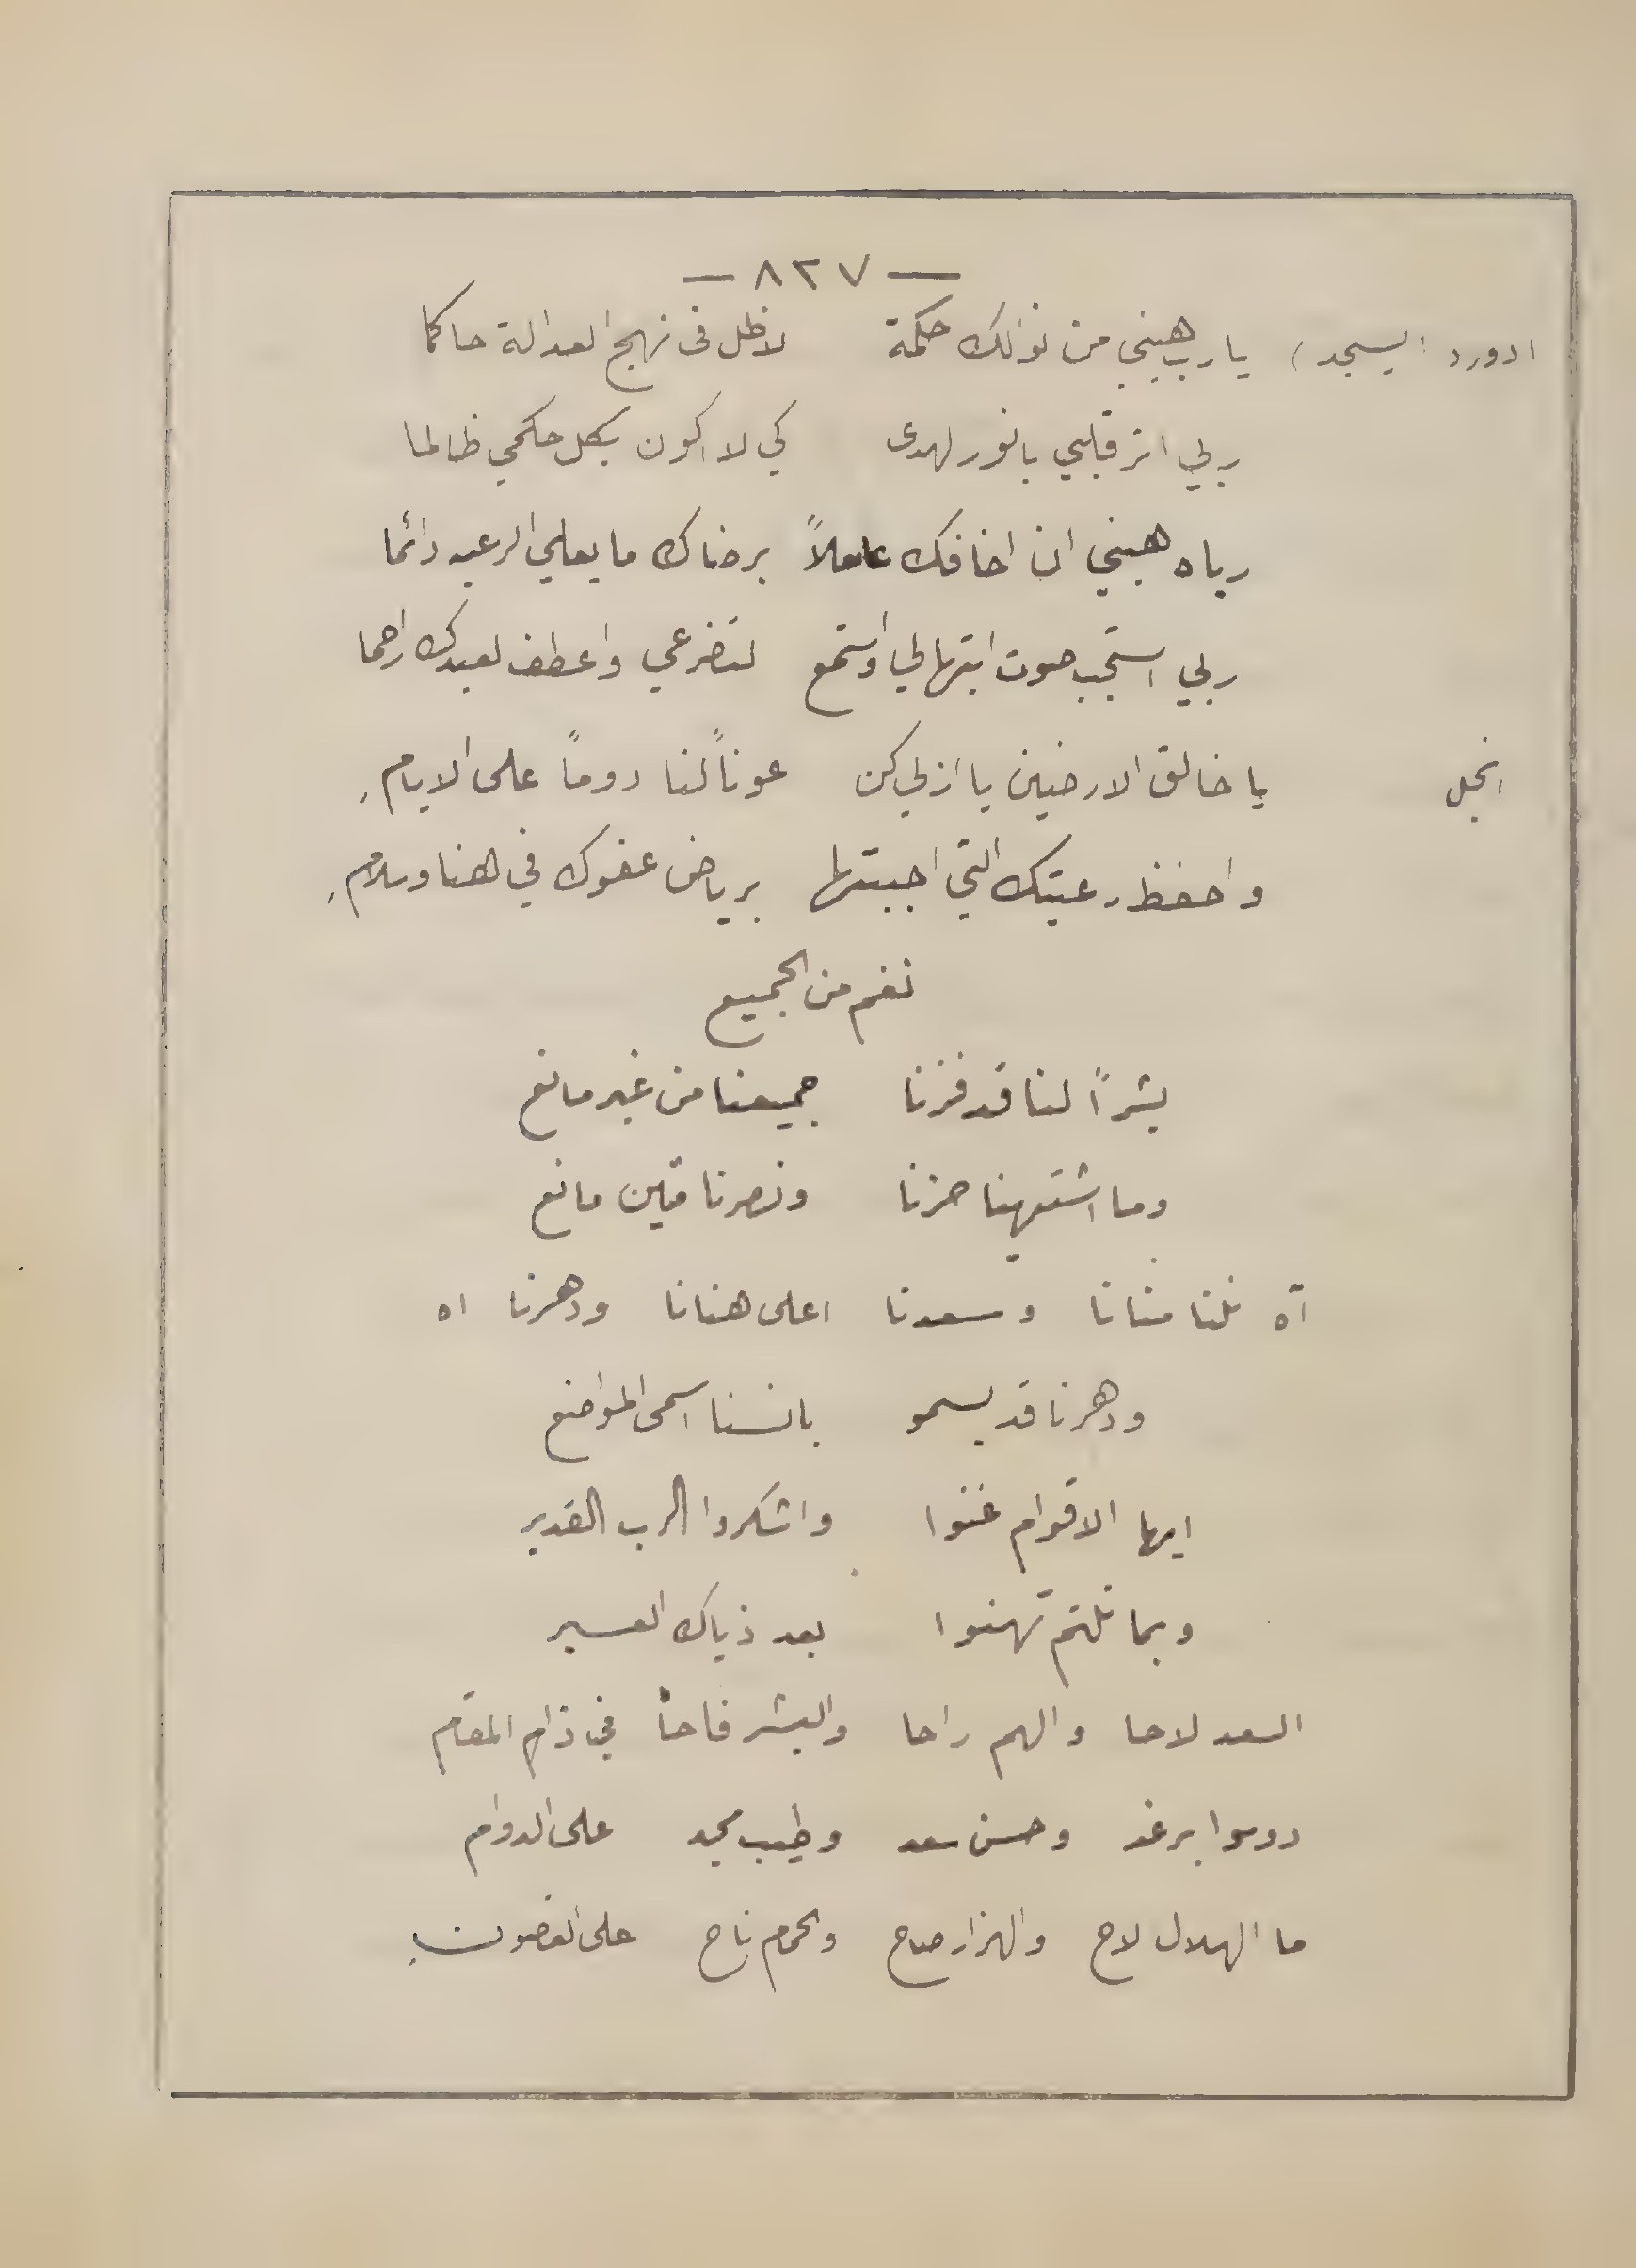 — ٨٢٧ —
ادورد ( يسجد ) يا رب هبني من نوالك حكمة لاظل فى نهج العدالة حاكما
ربي انر قلبي بانور لهدى كي لا اكون بكل حكمي ظالما
رباه هبني ان اخافك عاملاً برضاك ما يعلي الرعيه دائما
ربي استجب صوت ابتهالي واستمع لتضرعي واعطف لعبدك راحما
انجل يا خالق الارضين يا ازلي كن عوناً لنا دوماً على الايام
واحفظ رعيتك التي احببتها برياض عفوك في الهنا وسلام
نغم من الجميع
بشراً لنا قد فزنا جميعنا من غير مانع
وما اشتهينا حزنا ونصرنا مانع
آه نلنا منانا وسعدنا اعلى هنانا ودهرنا اه
ودهرنا قد يسمو بانسنا اسمى المواضع
ايها الاقوام غنوا واشكروا الرب القدير
وبما نلتم تهنوا بعد ذياك العسير
السعد لاحا والهم راحا والبشر فاحا في ذا المقام
دوموا برغد وحسن سعد وطيب مجد على الدوام
ما الهلال لاح والهزار صاح والحمام ناح على الغصون